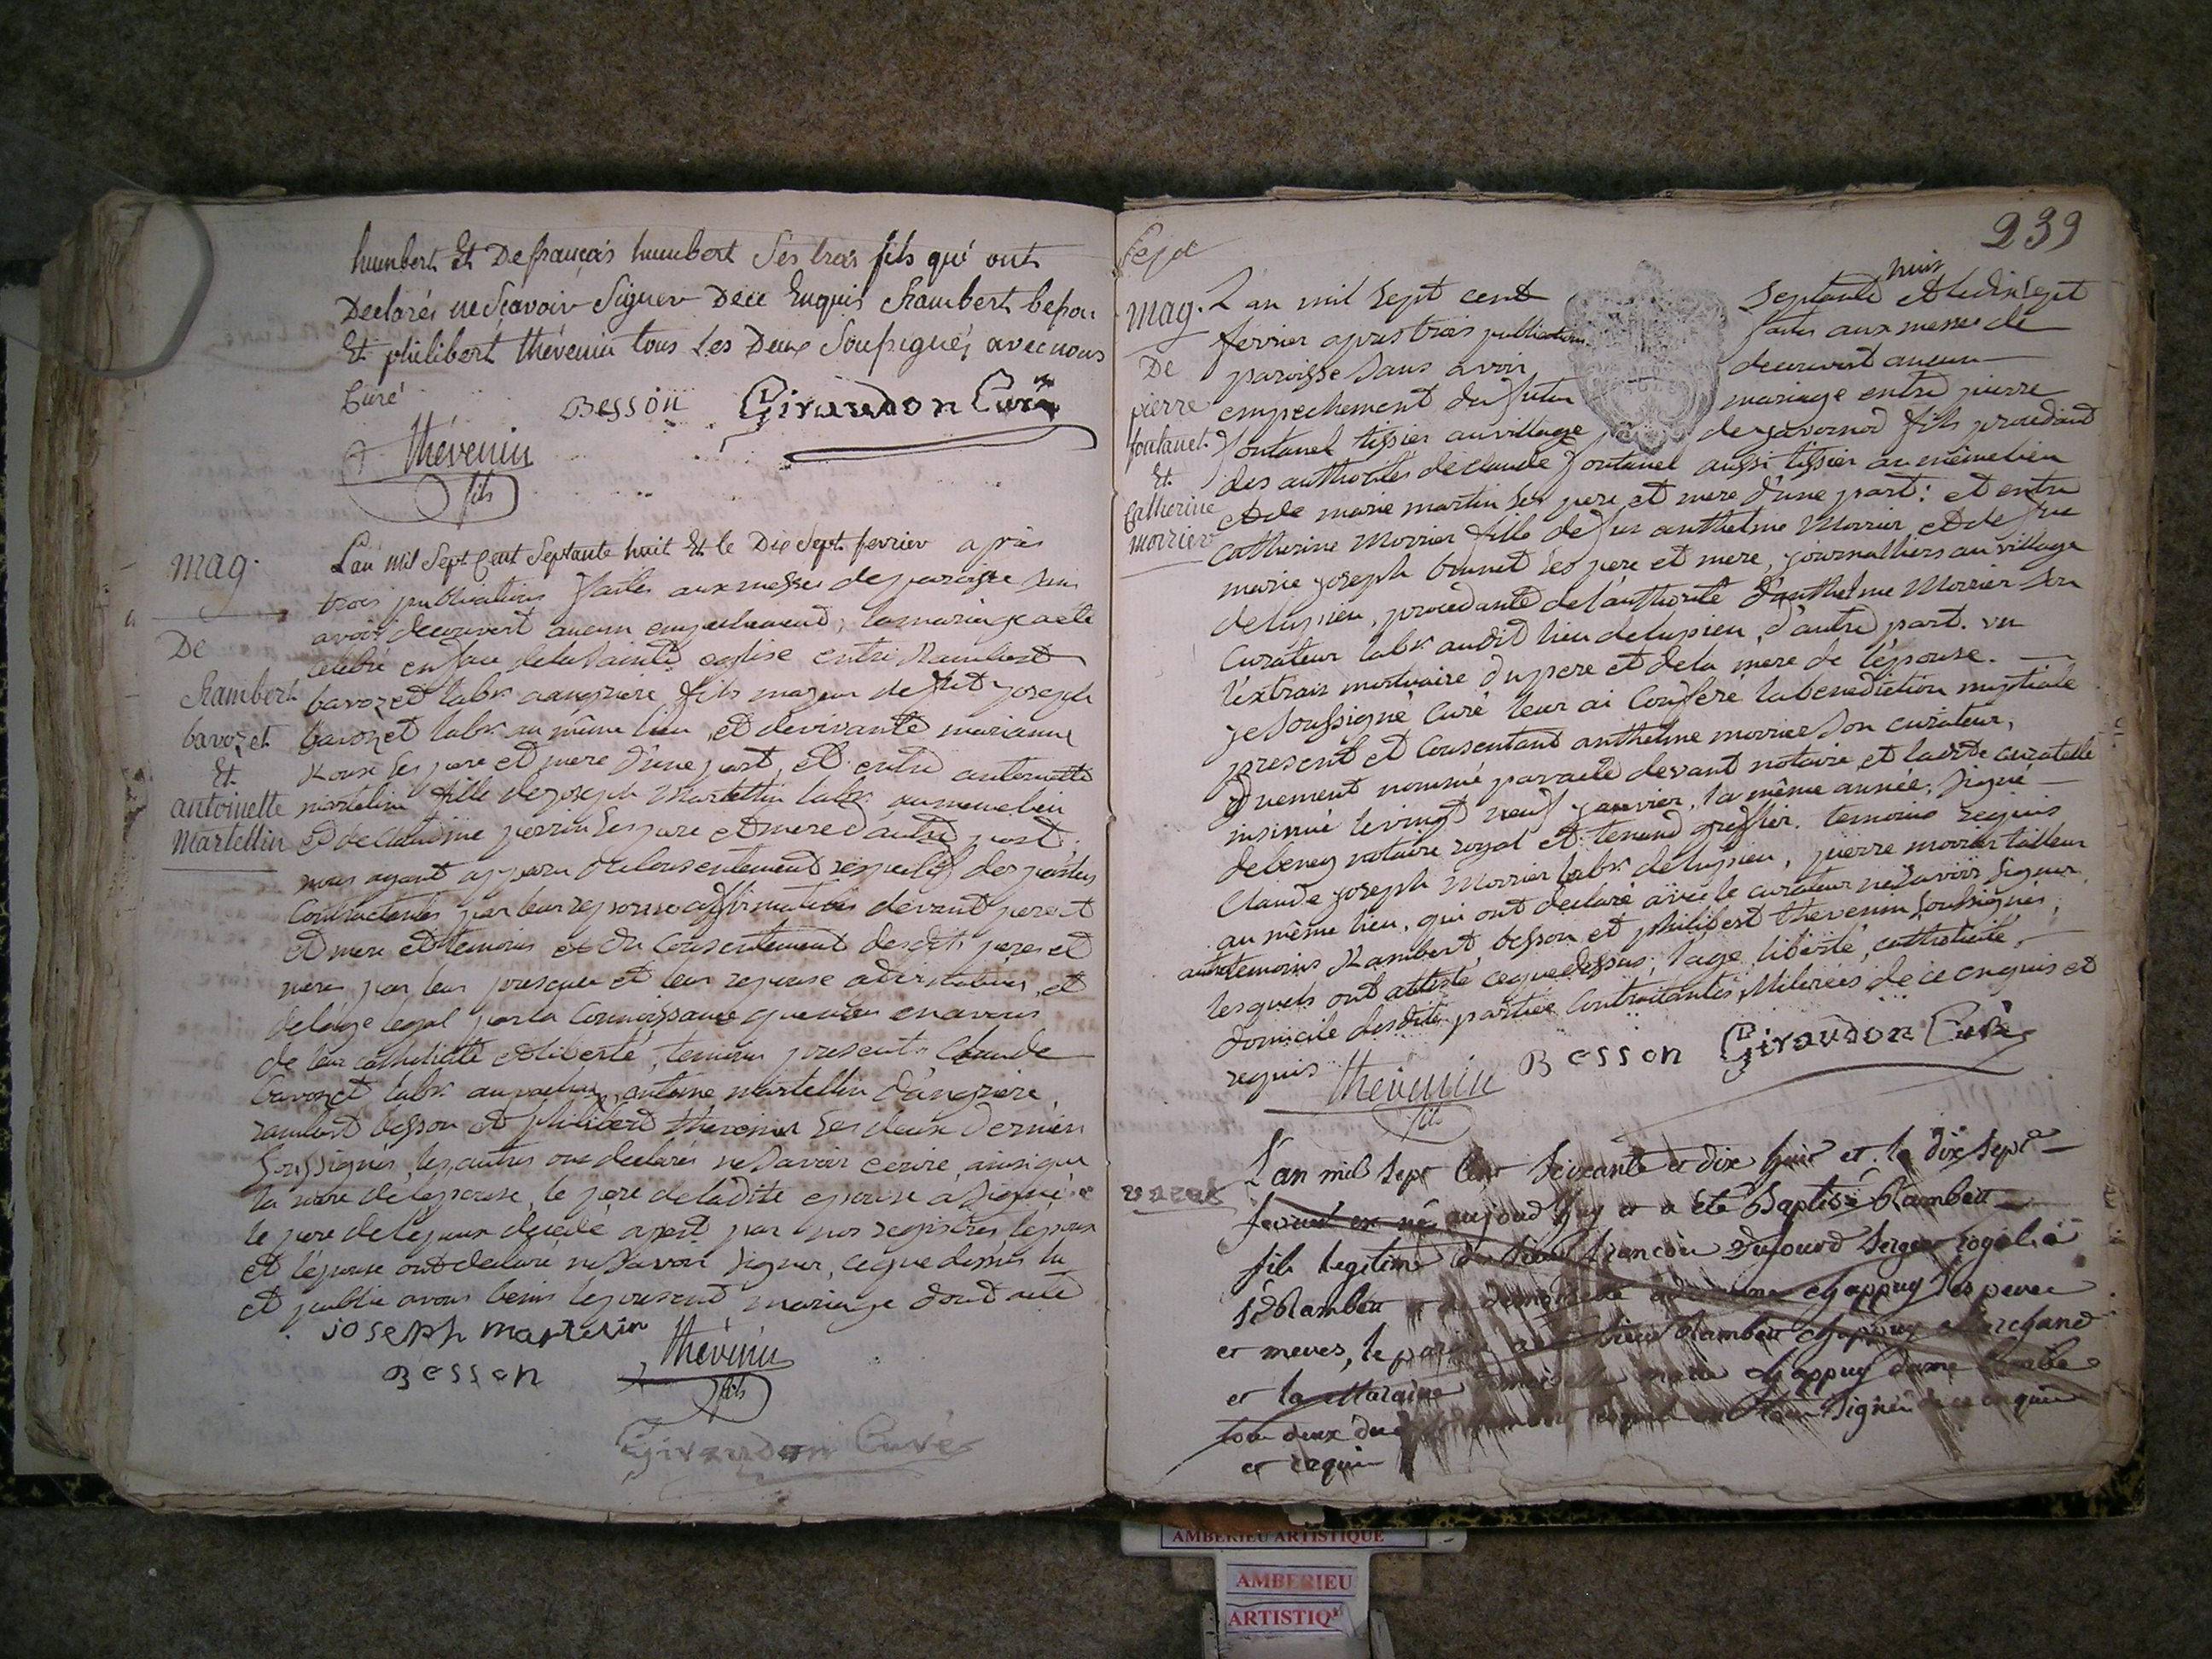 humbert Et De françois humbert Ses trois fils qui ont
Declarés ne Sçavoir Signer De ce Enquis Rambert besson
Et philibert thévenin tous Les Deux Soussignés avec nous
Curé
Besson Giraudon Curé
Thévenin
fils
mag.
De
Rambert
bavozet
Et
antoinette
Martellin
L'an mil Sept Cent Septante huit Et le Dix Sept fevrier après
trois publications faites aux messes de paroisse sans
avoir decouvert aucun empechement, le mariage a eté
celebré en face de la Sainte eglise entre Rambert
bavozet labr. a angriere fils majeur de feu joseph
bavozet labr. au même lieu, et de vivante marianne
Roux ses pere et mere d'une part, et entre antoinette
martelin fille de joseph Martellin labr. au meme lieu
et de Claudine perrin ses pere et mere d'autre part.
nous ayant apparu du Consentement respectif des parties
Contractantes par leur reponse affirmative devant pere et
et mere et temoins et du Consentement desdits peres et
mere par leur presence et leur reponse et
de l'age legal par la Connoissance que nous en avons
de leur catholicité et liberté, temoins presents Claude
bavozet labr. antoine martellin d'angriere,
rambert besson et philibert thevenin les deux derniers
Soussignés, les autres ont declarés ne Savoir ecrire ainsi que
la mere de l'epouse, le pere de ladite epouse a Signé
le pere de l'epoux decedé apert par nos registres, l'epoux
et l'epouse ont declaré ne Savoir signer, ce que dessus lu
et publié avons beni le present mariage dont acte
joseph martelin
Besson
Thévenin
fils
Giraudon Curé
239
mag.
De
pierre
fontanel
Et
Catherine
morrier
L'an mil sept cent septante huit et le dix sept
fevrier apres trois publications faites aux messes de
paroisse sans avoir decouvert aucun
empechement du futur mariage entre pierre
fontanel tissier au village de javornod fils procedant
des authorités de claude fontanel aussi tissier au même lieu
et de marie martin ses pere et mere d'une part: et entre
catherine Morrier fille de feu anthelme Morrier et de feue
marie joseph bonnet ses pere et mere, journalliers au village
de lupieu, procedante de l'authorité d'anthelme Morrier son
Curateur labr. audit lieu de lupieu, d'autre part. vu
l'extrait mortuaire du pere et de la mere de l'épouse.
je soussigné Curé leur ai Conferé la benediction nuptiale
present et Consentant anthelme morrier son curateur,
duement nommé par acte devant notaire et ladite curatelle
insinuée le vingt neuf janvier, la même année, signé
debeney notaire royal et tenand greffier. temoins requis
Claude joseph Morrier labr. de lupieu, pierre morrier tailleur
au même lieu, qui ont declaré avec le curateur ne savoir signer,
autres temoins Rambert besson et philibert thevenin soussignés,
lesquels ont attesté ce que dessus, l'age, liberté, catholicité,
domicile desdites parties Contractantes, de ce enquis et
requis
Thévenin Besson Giraudon Curé
fils
vacat
L'an mil sept cent soixante et dix huit et le dix sept
fevrier est né aujourd'huy et a été Baptisé Rambert
fils legitime de Sieur francois Dufourd Sergent royal à
St Rambert et de demoiselle chappuy ses peres
et meres, le parain a été Sieur Rambert chappuy Marchand
et la Maraine demoiselle chappuy dame
tous deux signés de ce enquis
et requis
AMBERIEU ARTISTIQUE
AMBERIEU
ARTISTIQ